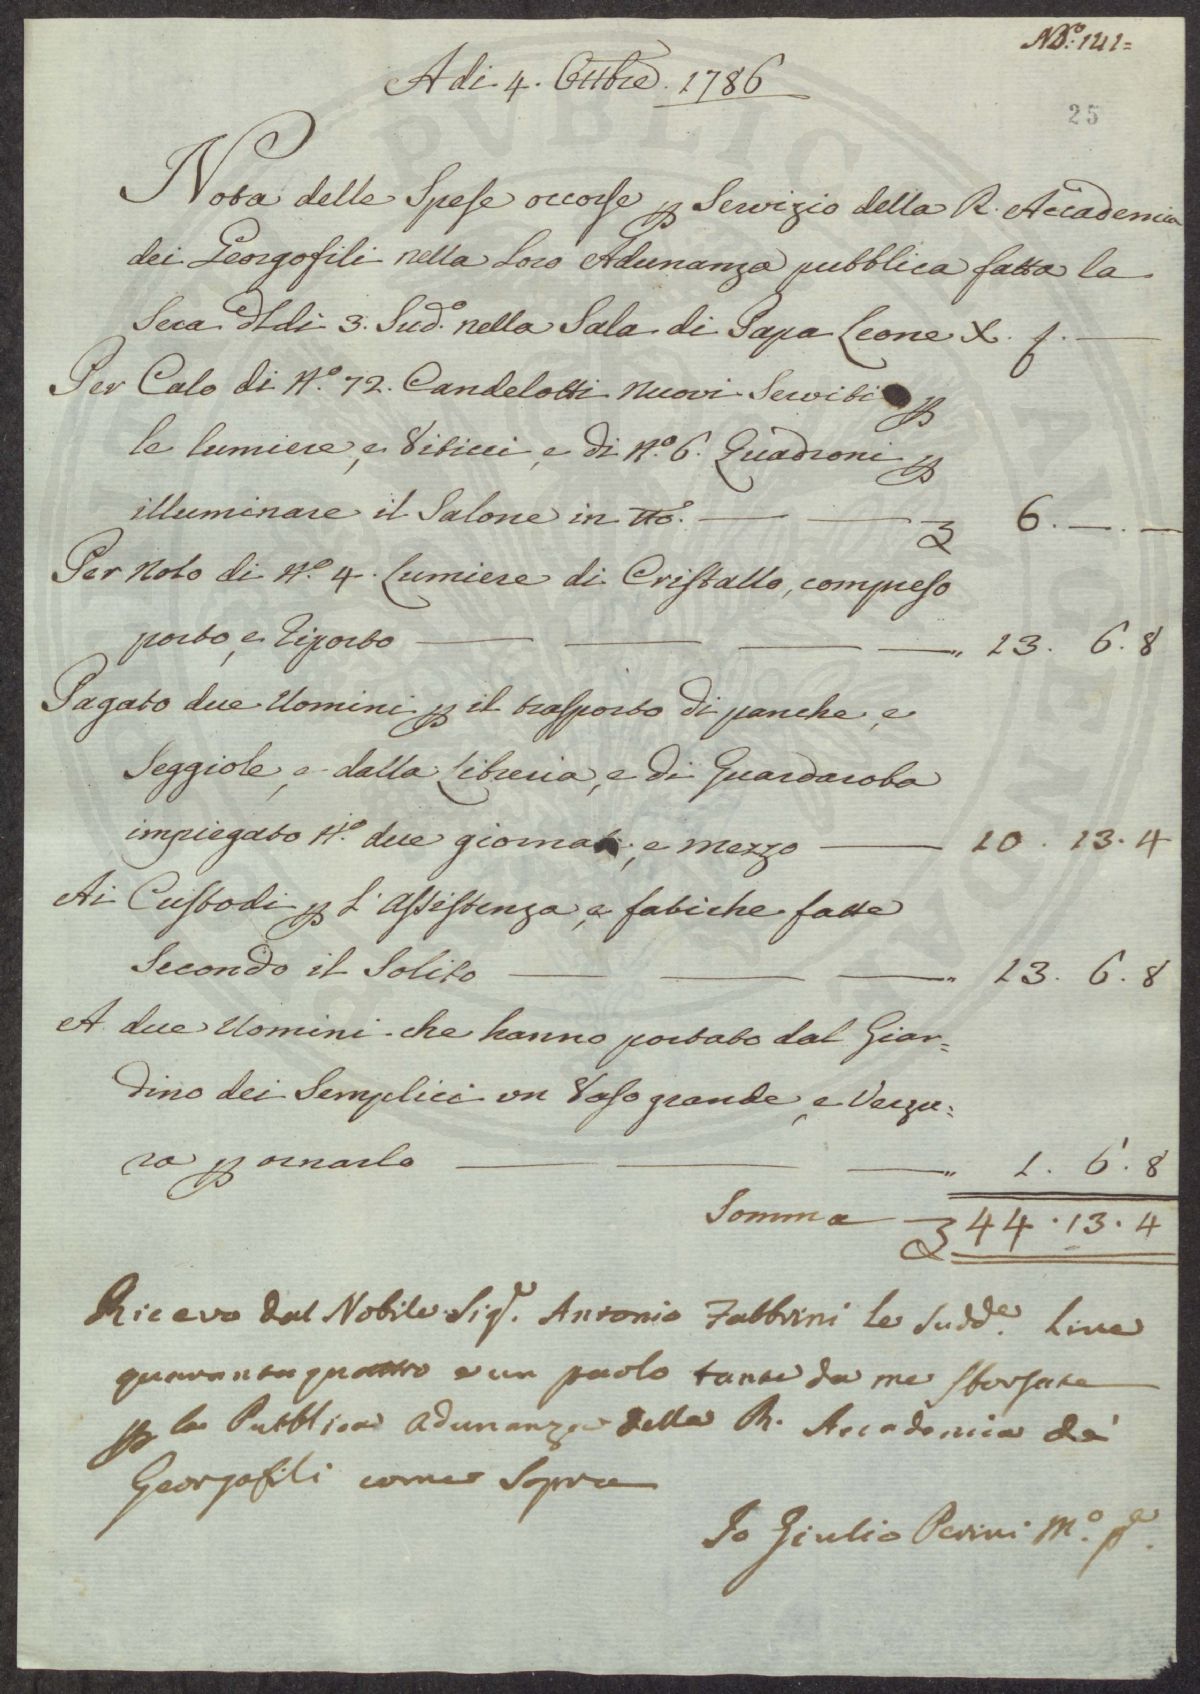 No: 141=
A di 4. Ottbre. 1786
25
Nota delle Spese occorse p Servizio della R. Accademia
dei Georgofili nella Loro Adunanza pubblica fatta la
Sera del dì 3. Sud.o nella Sala di Papa Leone X. f. —
Per Calo di N.o 72. Candelotti nuovi Serviti p
le lumiere, e Viticci, e di N.o 6. Quadroni p
illuminare il Salone in tto. — — 6. —. —
Per Nolo di N.o 4. Lumiere di Cristallo, compreso
porto, e riporto — — — — „ 13. 6. 8
Pagato due Uomini p il trasporto di panche, e
Seggiole, e dalla Libreria, e di Guardaroba
impiegato N.o due giornate, e mezzo — 10. 13. 4
Ai Custodi p l'assistenza, e fatiche fatte
Secondo il Solito — — — „ 13. 6. 8
A due Uomini che hanno portato dal Giar=
dino dei Semplici un Vaso grande, e Verzu=
ra p ornarlo — — — „ 1. 6. 8
Somma 44. 13. 4
Ricevo dal Nobile Sig.e Antonio Fabbrini le sudd.e Lire
quarantaquattro e un paolo tante da me sborsate
p la Pubblica adunanza della R. Accademia de'
Georgofili come sopra
Io Giulio Perini M.o p.a